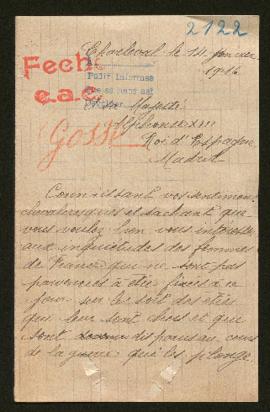 2122
Charleval le 14 janvier
1916
Fech:
e.a.e.
Pedir informes
Sa Majesté
Alphonse XIII
Roi d'Espagne
Madrid
GOSSE
Connaissant vos sentiments
chevaleresques et sachant que
vous voulez bien vous intéresser
aux inquiétudes des femmes
de France qui ne sont pas
parvenues à être fixées à ce
jour sur le sort des êtres
qui leur sont chers et que
sont disparus au cours
de la guerre